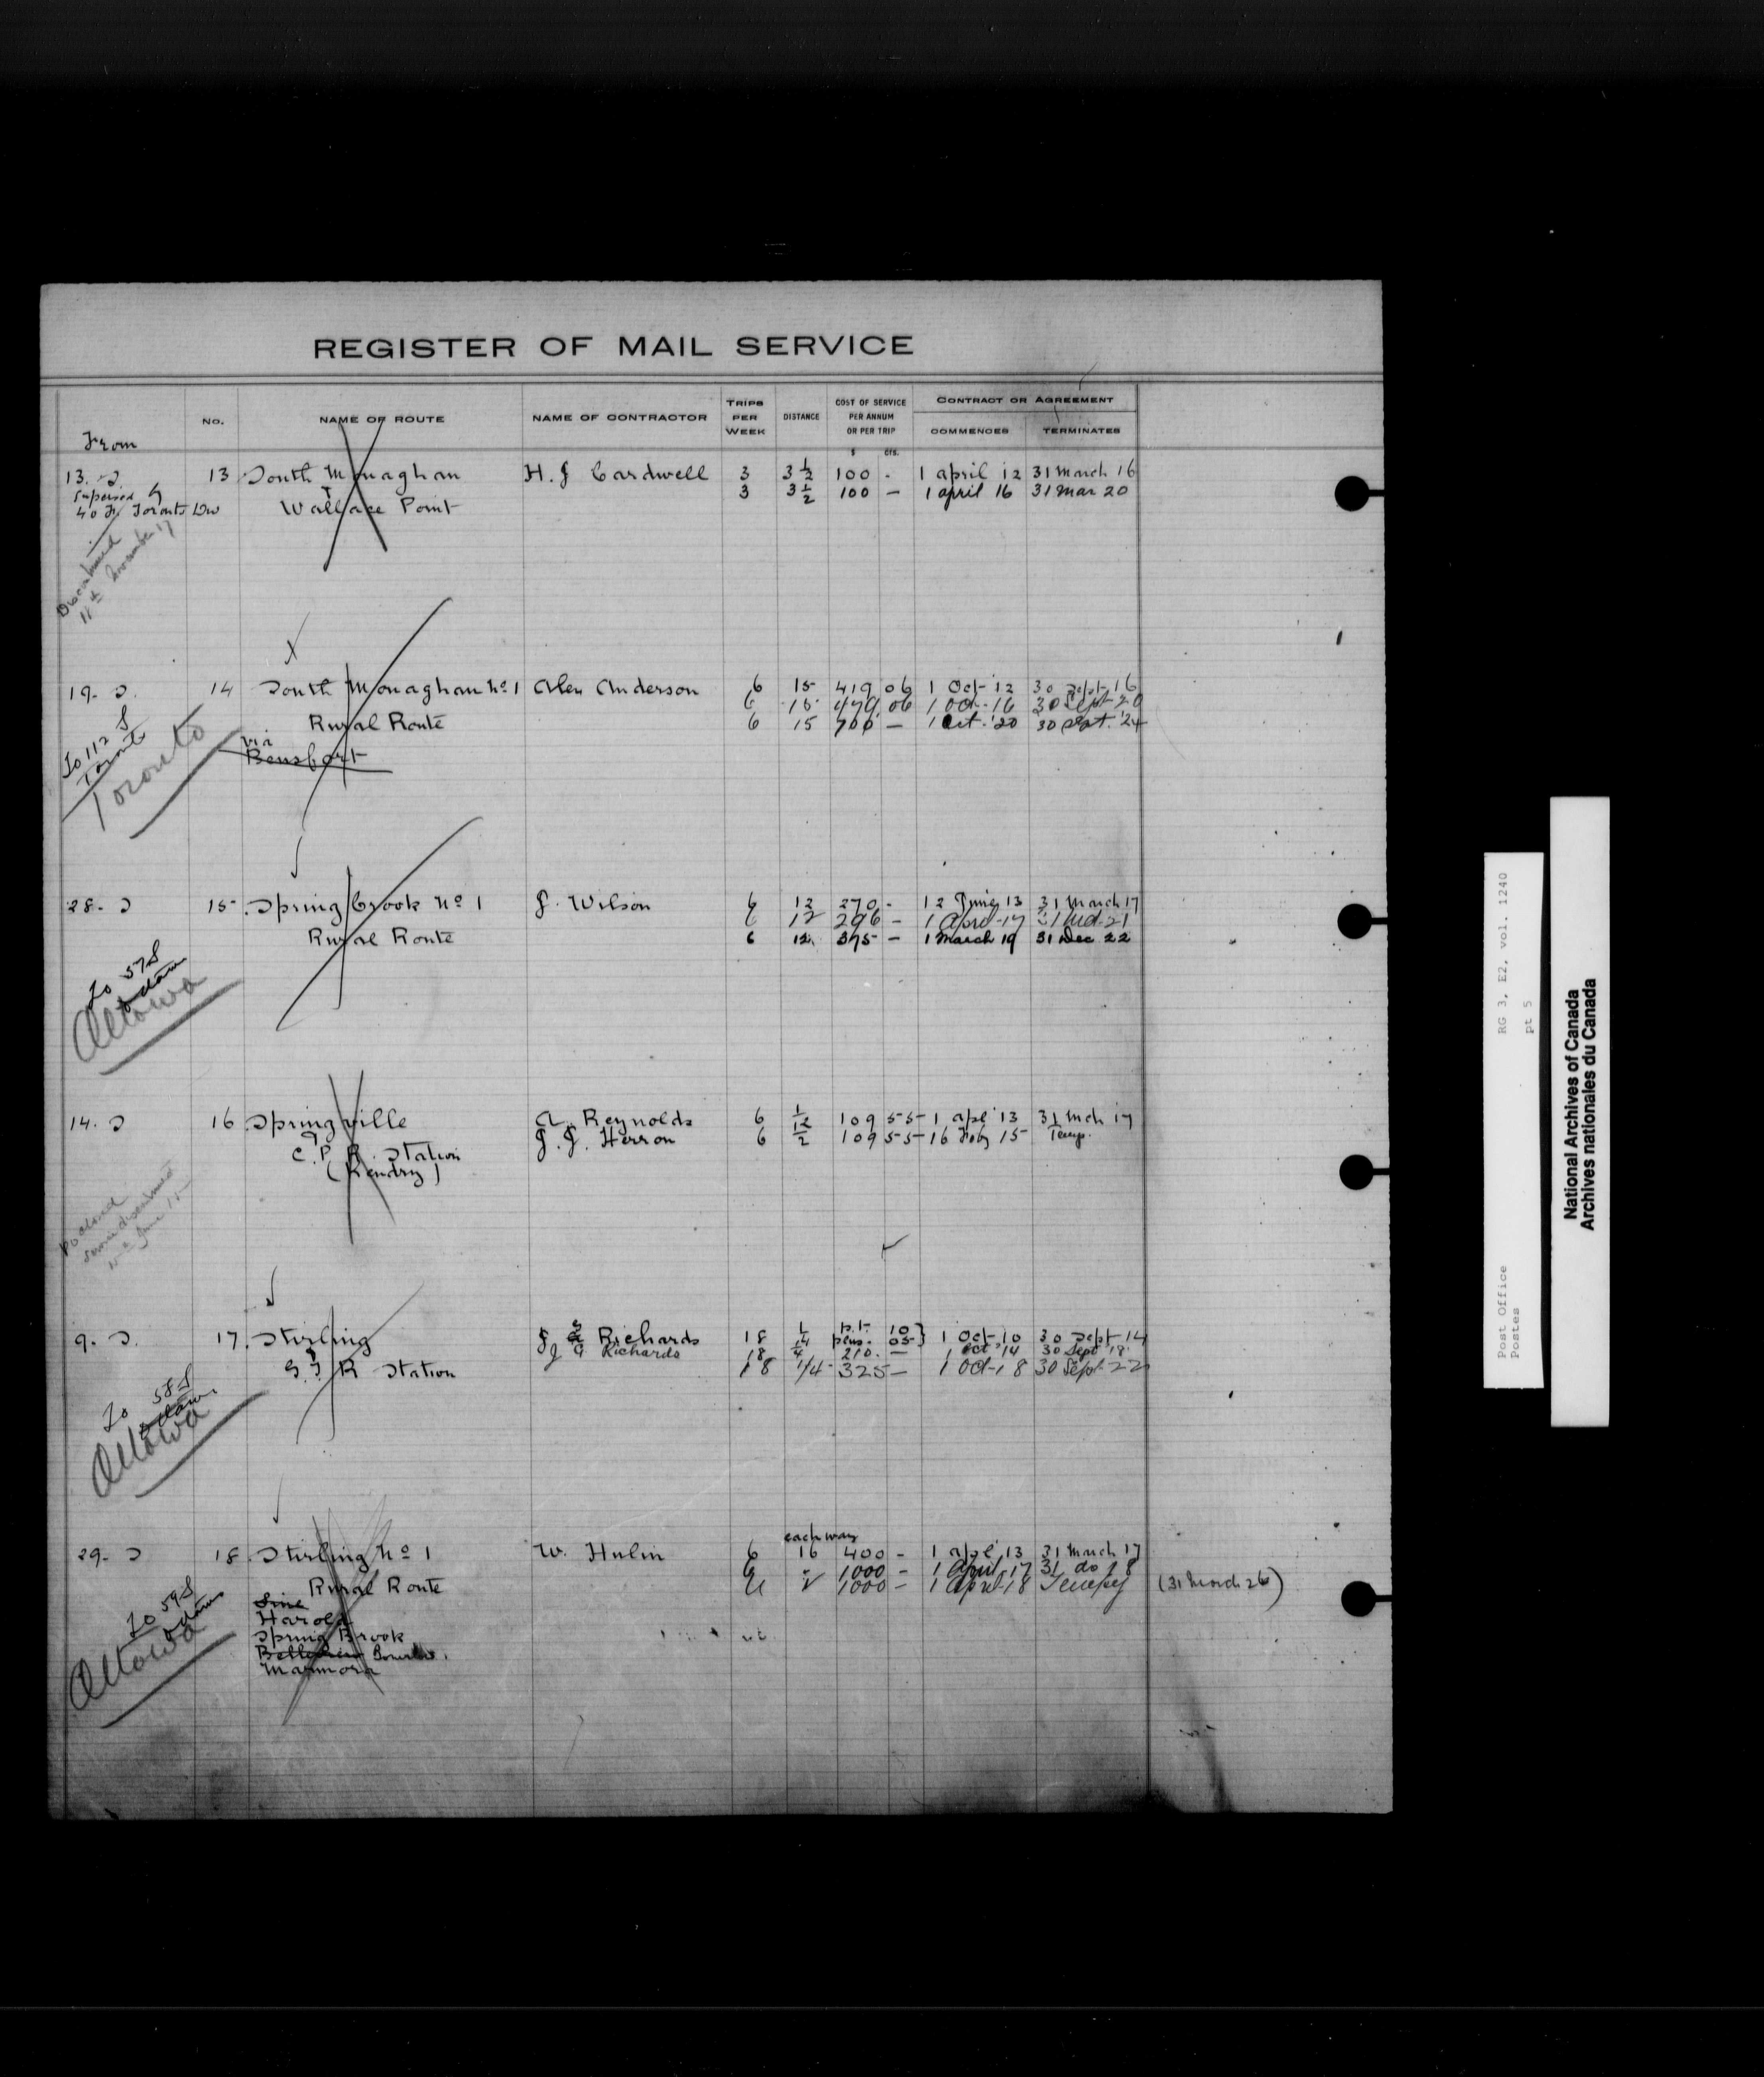 REGISTER OF MAIL SERVICE
From
No.
NAME OF ROUTE
NAME OF CONTRACTOR
TRIPS PER WEEK
DISTANCE
COST OF SERVICE PER ANNUM OR PER TRIP
$ cts.
CONTRACT OR AGREEMENT
COMMENCES
TERMINATES
13. S. 13 South Monaghan H. J Cardwell 3 3 1/2 100 - 1 april 12 31 March 16
& Wallace Point 3 3 1/2 100 — 1 april 16 31 Mar 20
40 Toronto Dw
Discontinued
11th November 17
19. S. 14 South Monaghan No 1 Alex Anderson 6 15 419 06 1 Oct 12 30 Sept 16
6 15 06 1 Oct. 16 30 Sept 20
Rural Route 6 15 700 — 1 Oct. '20 30 Sept. '24
via
Bensfort
To 112 S
Toronto
Toronto
28. S 15. Spring brook No 1 J. Wilson 6 12 270 - 12 June 13 31 March 17
6 12 296 — 1 April 17 31 Mch. 21
Rural Route 6 12 375 — 1 March 19 31 Dec 22
To 57 S
Ottawa
Ottawa
14. S 16 Springville A. Reynolds 6 1/2 109 55 1 apl '13 31 Mch 17
& C. P. R. Station J. J. Herron 6 1/2 109 55 16 Feby 15 Temp.
(Kendry)
P o closed
Service discontinued
June 15
9. S. 17. Stirling J S Richards 18 1/4 10 } 1 Oct 10 30 Sept 14
05
J G Richards 18 1/4 210. — 1 Oct '14 30 Sept '18
& G. T. R Station 18 1/4 325 — 1 Oct 18 30 Sept 22
To 58 S
Ottawa
Ottawa
each way
29. S 18. Stirling No 1 W. Hulin 6 16 400 - 1 apl 13 31 March 17
6 1000 - 1 April 17 31 do 18
Rural Route 6 1000 - 1 April 18 (31 March 26)
Sine
Harold
Spring Brook
Marmora
To 59 S
Ottawa
Ottawa
RG 3, E2, vol. 1240
pt 5
Post Office
Postes
National Archives of Canada
Archives nationales du Canada